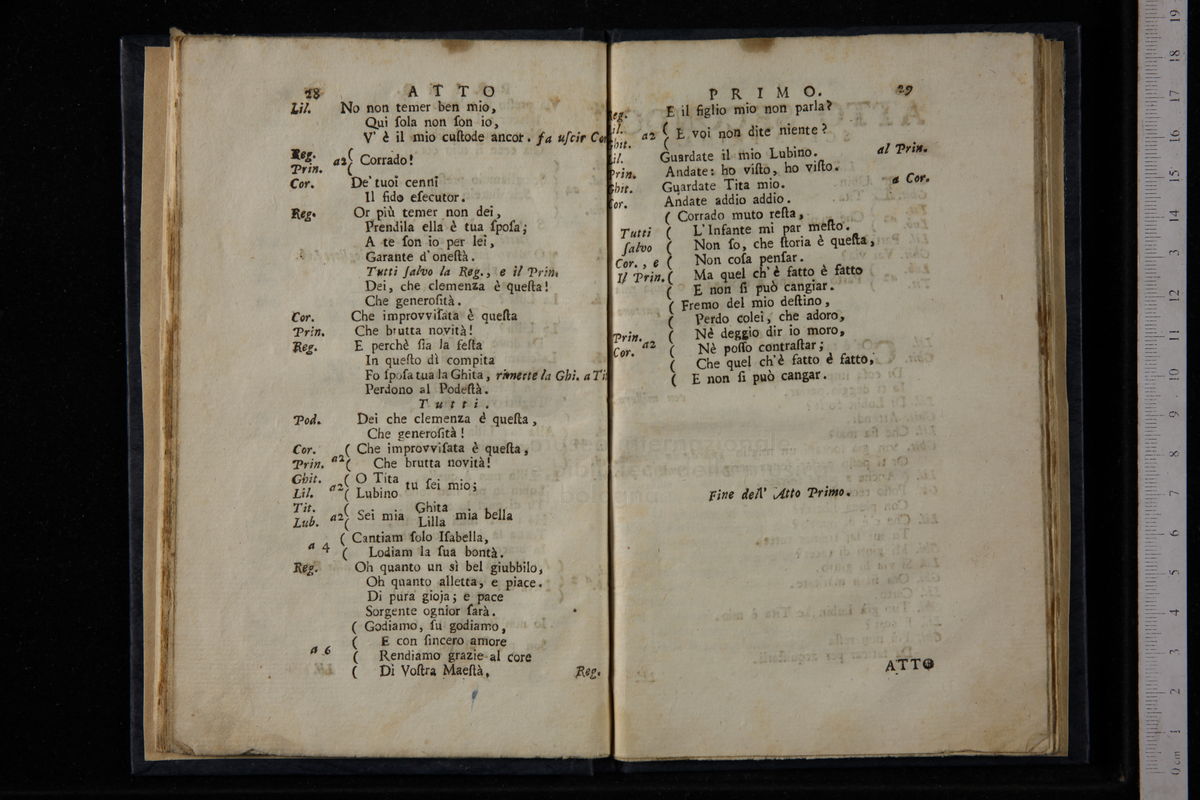 28 ATTO
Lil. No non temer ben mio,
Qui ſola non ſon io,
V' è il mio cuſtode ancor. fa uſcir Cor
Reg. Prin. a2 ( Corrado!
Cor. De' tuoi cenni
Il fido eſecutor.
Reg. Or più temer non dei,
Prendila ella è tua ſpoſa;
A te ſon io per lei,
Garante d'oneſtà.
Tutti ſalvo la Reg., e il Prin.
Dei, che clemenza è queſta!
Che generoſità.
Cor. Che improvviſata è queſta
Prin. Che brutta novità!
Reg. E perchè ſia la feſta
In queſto dì compita
Fo ſpoſa tua la Ghita, rimette la Ghi. a Ti
Perdono al Podeſtà.
Tutti.
Pod. Dei che clemenza è queſta,
Che generoſità!
Cor. ( Che improvviſata è queſta,
Prin. a2 ( Che brutta novità!
Ghit. ( O Tita
Lil. a2 ( Lubino tu ſei mio;
Tit. ( Ghita
Lub. a2 ( Sei mia Lilla mia bella
( Cantiam ſolo Iſabella,
a 4 ( Lodiam la ſua bontà.
Reg. Oh quanto un sì bel giubbilo,
Oh quanto alletta, e piace.
Di pura gioja; e pace
Sorgente ognior ſarà.
( Godiamo, ſu godiamo,
( E con ſincero amore
a 6 ( Rendiamo grazie al core
( Di Voſtra Maeſtà,
Reg.
PRIMO. 29
eg. E il figlio mio non parla?
il. hit. a2 ( E voi non dite niente?
il. Guardate il mio Lubino. al Prin.
Prin. Andate: ho viſto, ho viſto.
Ghit. Guardate Tita mio. a Cor.
Cor. Andate addio addio.
( Corrado muto reſta,
Tutti ( L'Infante mi par meſto.
ſalvo ( Non ſo, che ſtoria è queſta,
Cor., e ( Non coſa penſar.
Il Prin. ( Ma quel ch'è fatto è fatto
( E non ſi può cangiar.
( Fremo del mio deſtino,
( Perdo colei, che adoro,
Prin. ( Nè deggio dir io moro,
Cor. a2 ( Nè poſſo contraſtar;
( Che quel ch'è fatto è fatto,
( E non ſi può cangar.
Fine dell' Atto Primo.
ATTO